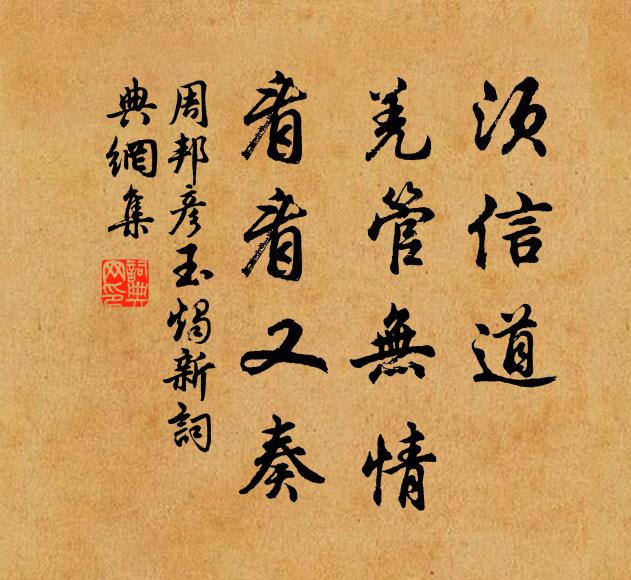 須信道
羌管無情
看看又奏
周邦彦玉燭新詞
典網集
詞典網印